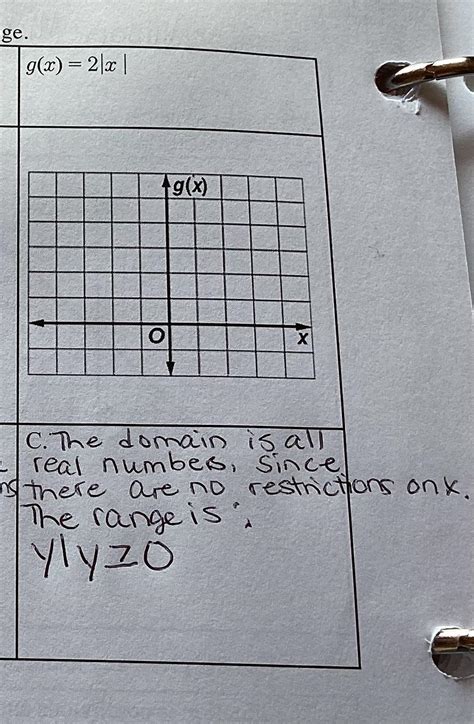 ge.
g(x) = 2|x|
g(x)
O
x
C. The domain is all
real numbers, since
ns there are no restrictions on x.
The range is:
y|y≥0